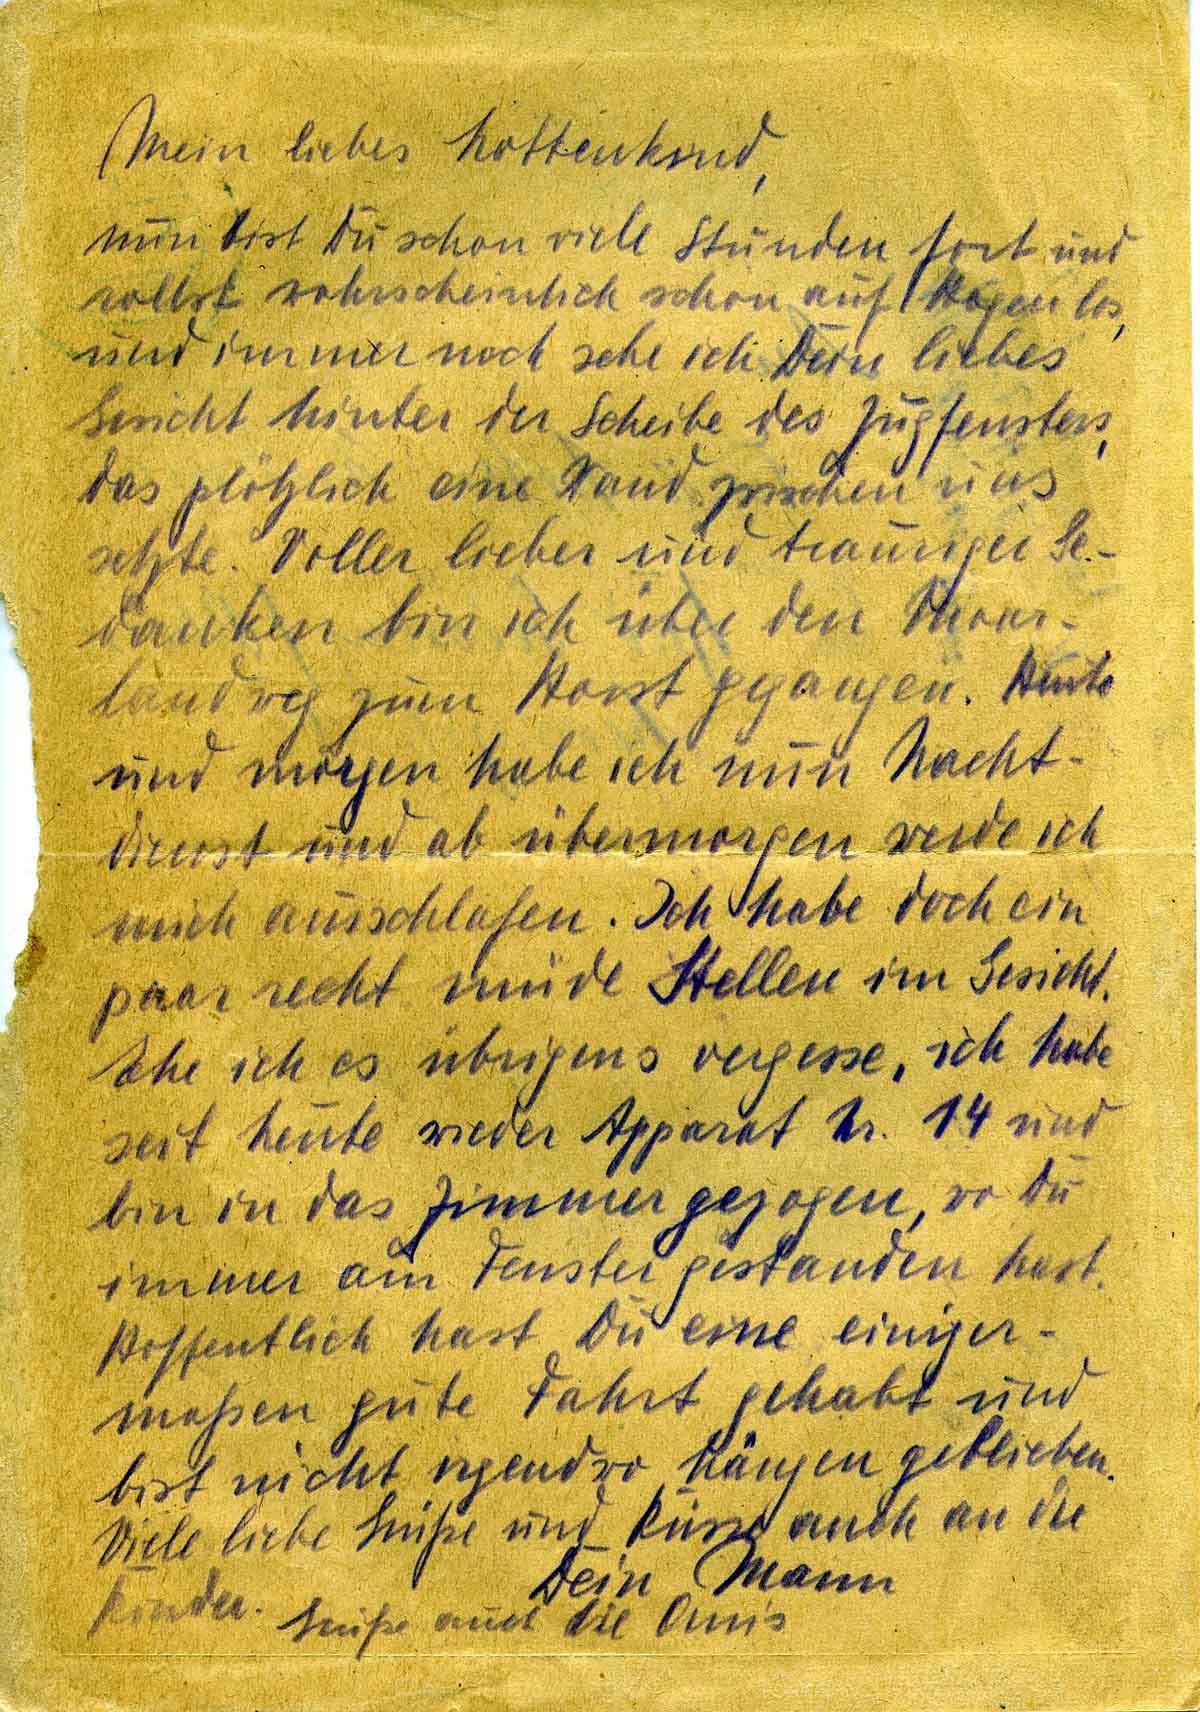 Mein liebes Lottenkind,
nun bist Du schon viele Stunden fort und
rollst wahrscheinlich schon auf Hagen los,
und immer noch sehe ich Dein liebes
Gesicht hinter der Scheibe des Zugfensters,
das plötzlich eine Wand zwischen uns
setzte. Voller lieber und trauriger Ge-
danken bin ich über den
landweg zum Horst gegangen. Heute
und morgen habe ich nun Nacht-
dienst und ab übermorgen werde ich
mich ausschlafen. Ich habe doch ein
paar recht müde Stellen im Gesicht.
Ehe ich es übrigens vergesse, ich habe
seit heute wieder Apparat Nr. 14 und
bin in das Zimmer gezogen, wo Du
immer am Fenster gestanden hast.
Hoffentlich hast Du eine einiger-
maßen gute Fahrt gehabt und
bist nicht irgendwo hängen geblieben.
Viele liebe Grüße und Küsse auch an die
Kinder. Dein Mann
Grüße auch die Omis